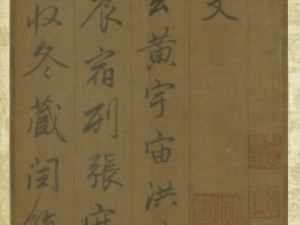 文
玄黃宇宙洪
辰宿列張寒
收冬藏閏餘